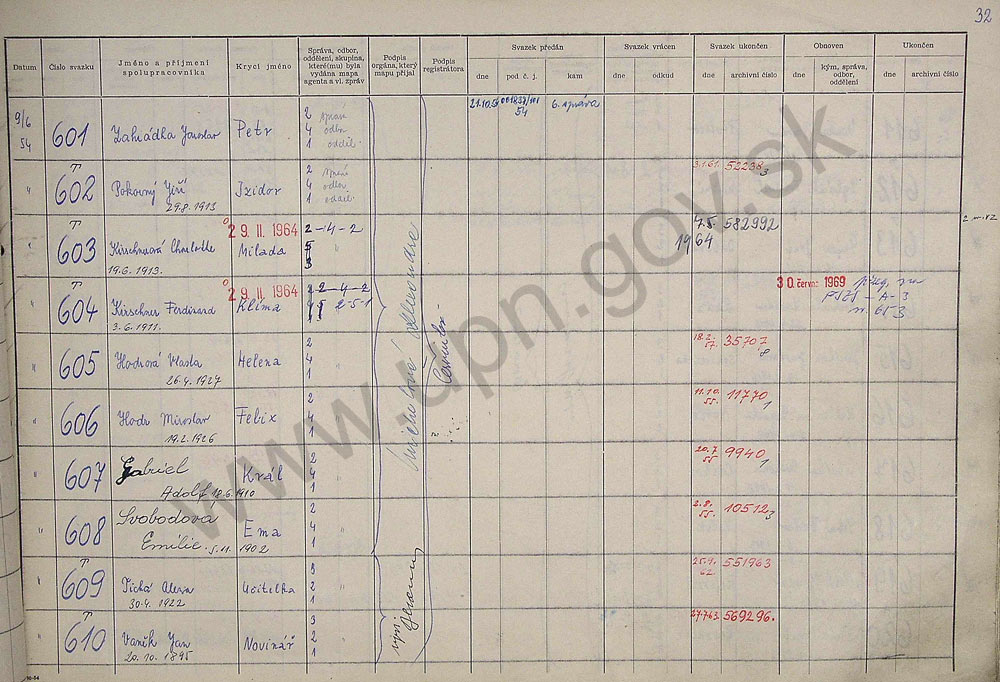 32
Datum
Číslo svazku
Jméno a příjmení
spolupracovníka
Krycí jméno
Správa, odbor,
oddělení, skupina,
které(mu) byla
vydána mapa
agenta a vl. zpráv
Podpis
orgána, který
mapu přijal
Podpis
registrátora
Svazek předán
dne
pod č. j.
kam
Svazek vrácen
dne
odkud
Svazek ukončen
dne
archivní číslo
Obnoven
dne
kým, správa,
odbor,
oddělení
Ukončen
dne
archivní číslo
9/6
54
601
Zahrádka Jaroslav
Petr
2 správa
4 odbor
1 odděl.
6. správa
602
Pokorný Jiří
29.8.1913
Izidor
2
4
1
3.1.61. 52238
3
603
Kirschnerová Charlotte
19.6.1913.
29. II. 1964
Milada
2-4-2
582992
1964
604
Kirschner Ferdinand
3.6.1911.
29. II. 1964
Klíma
2-4-2
2-5-1
30. června 1969
A-3
605
Hodrová Vlasta
26.4.1927
Helena
2
4
1
18.2.
57. 35707
8
606
Hodr Miroslav
19.2.1926
Felix
2
4
1
11.10.
55. 11770
1
607
Gabriel
Adolf 18.6.1910
Král
2
4
1
20.7
55 9940
1
608
Svobodova
Emilie. 5.11.1902
Ema
2
4
1
2.8.
55. 10512
3
609
Tichá Alena
30.4.1922
Učitelka
2
1
25.9.
62. 551963
610
Vaněk Jan
20.10.1895
Novinář
3
2
1
27.7.63. 569296.
www.upn.gov.sk